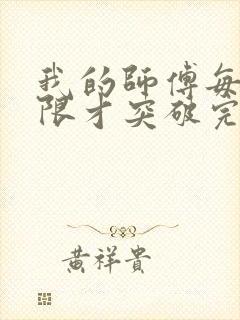 我的師傅每
限才突破完
黃祥貴